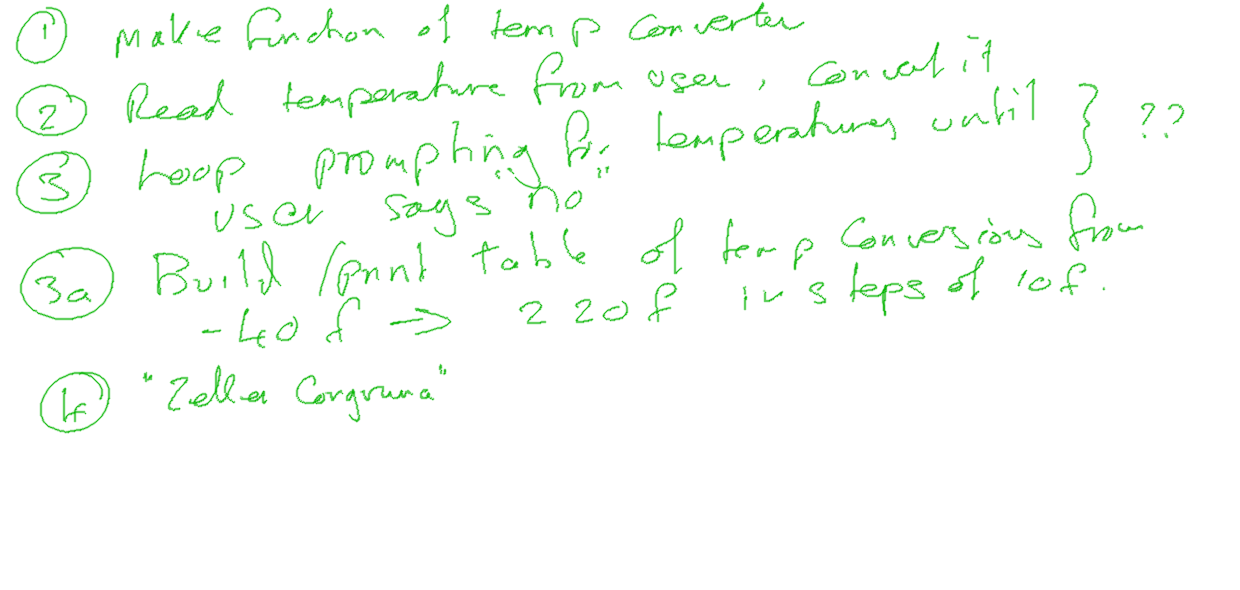 1 Make function of temp converter
2 Read temperature from user, convert it
3 Loop prompting for temperatures until } ??
user says "no"
3a Build/print table of temp conversions from
-40f → 220f in steps of 10f.
4 "Zeller Congruna"